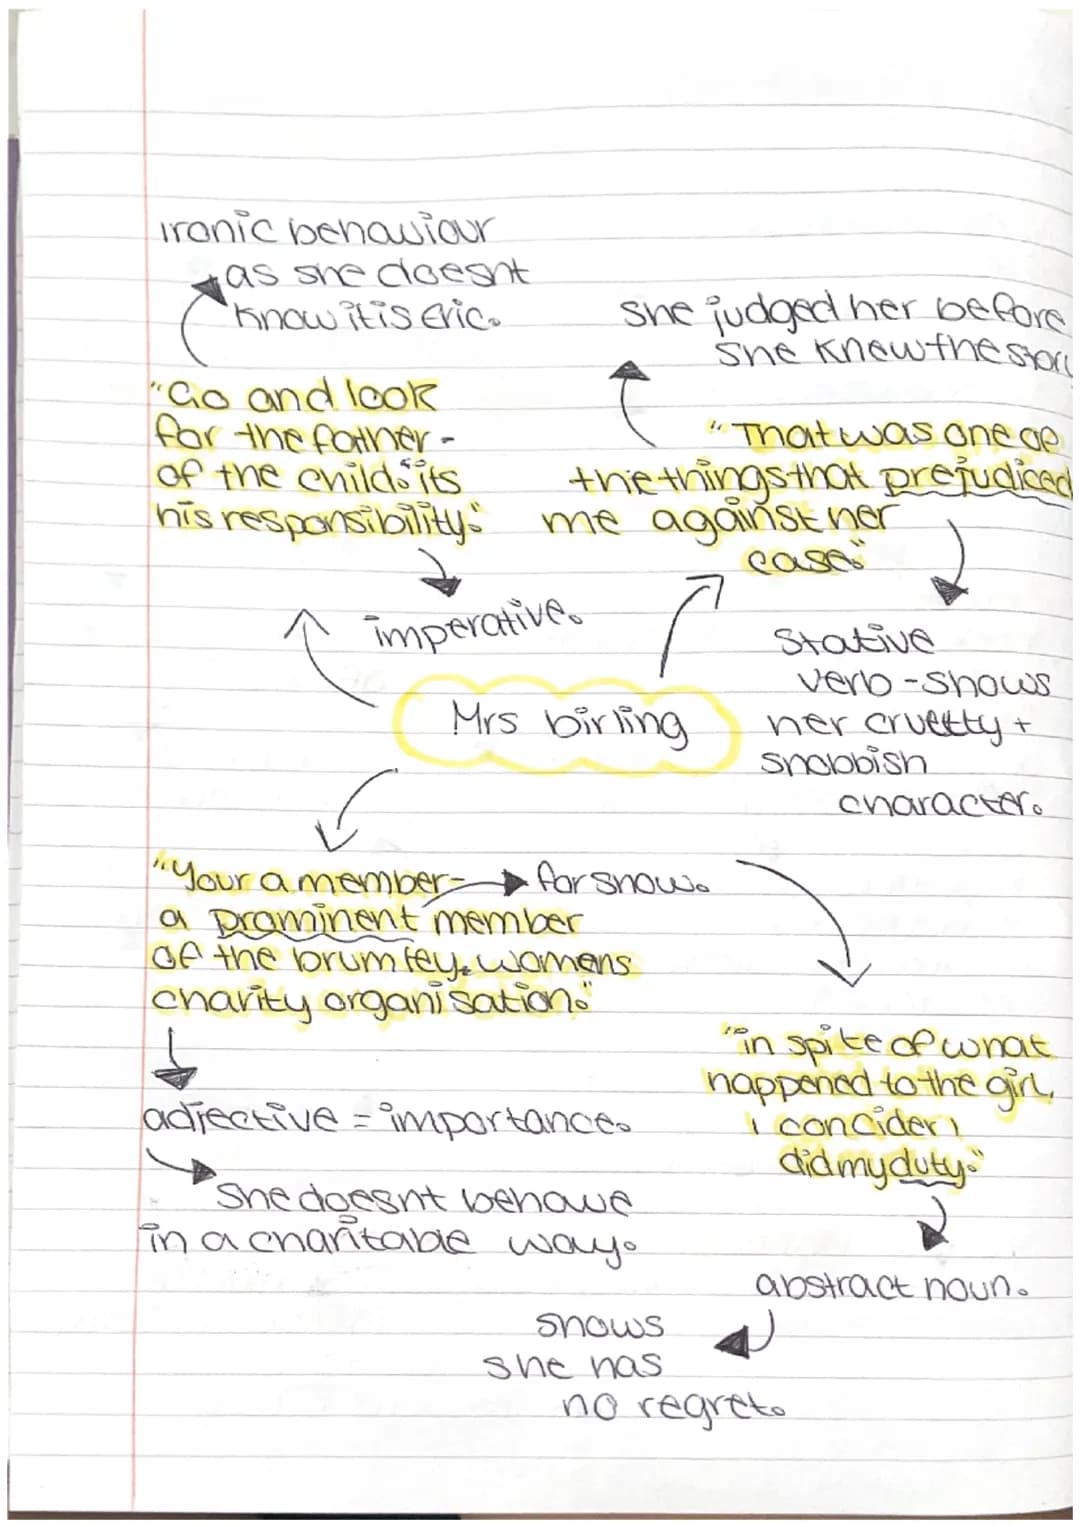 ironic behaviour
as she doesnt
know it is eric.
"Go and look
for the father-
of the child. "its
his responsibility."
imperative.
she judged her before
she knew the
"That was one of
the things that prejudiced
me against her
case."
Stative
verb - shows
her cruelty +
snobbish
character.
Mrs birling
"Your a member-
for show.
a prominent member
of the brumley womens
charity organisation."
adjective = importance.
She doesnt behave
in a charitable way.
"in spite of what
happened to the girl,
i concider i
did my duty."
abstract noun.
shows
she has
no regret.